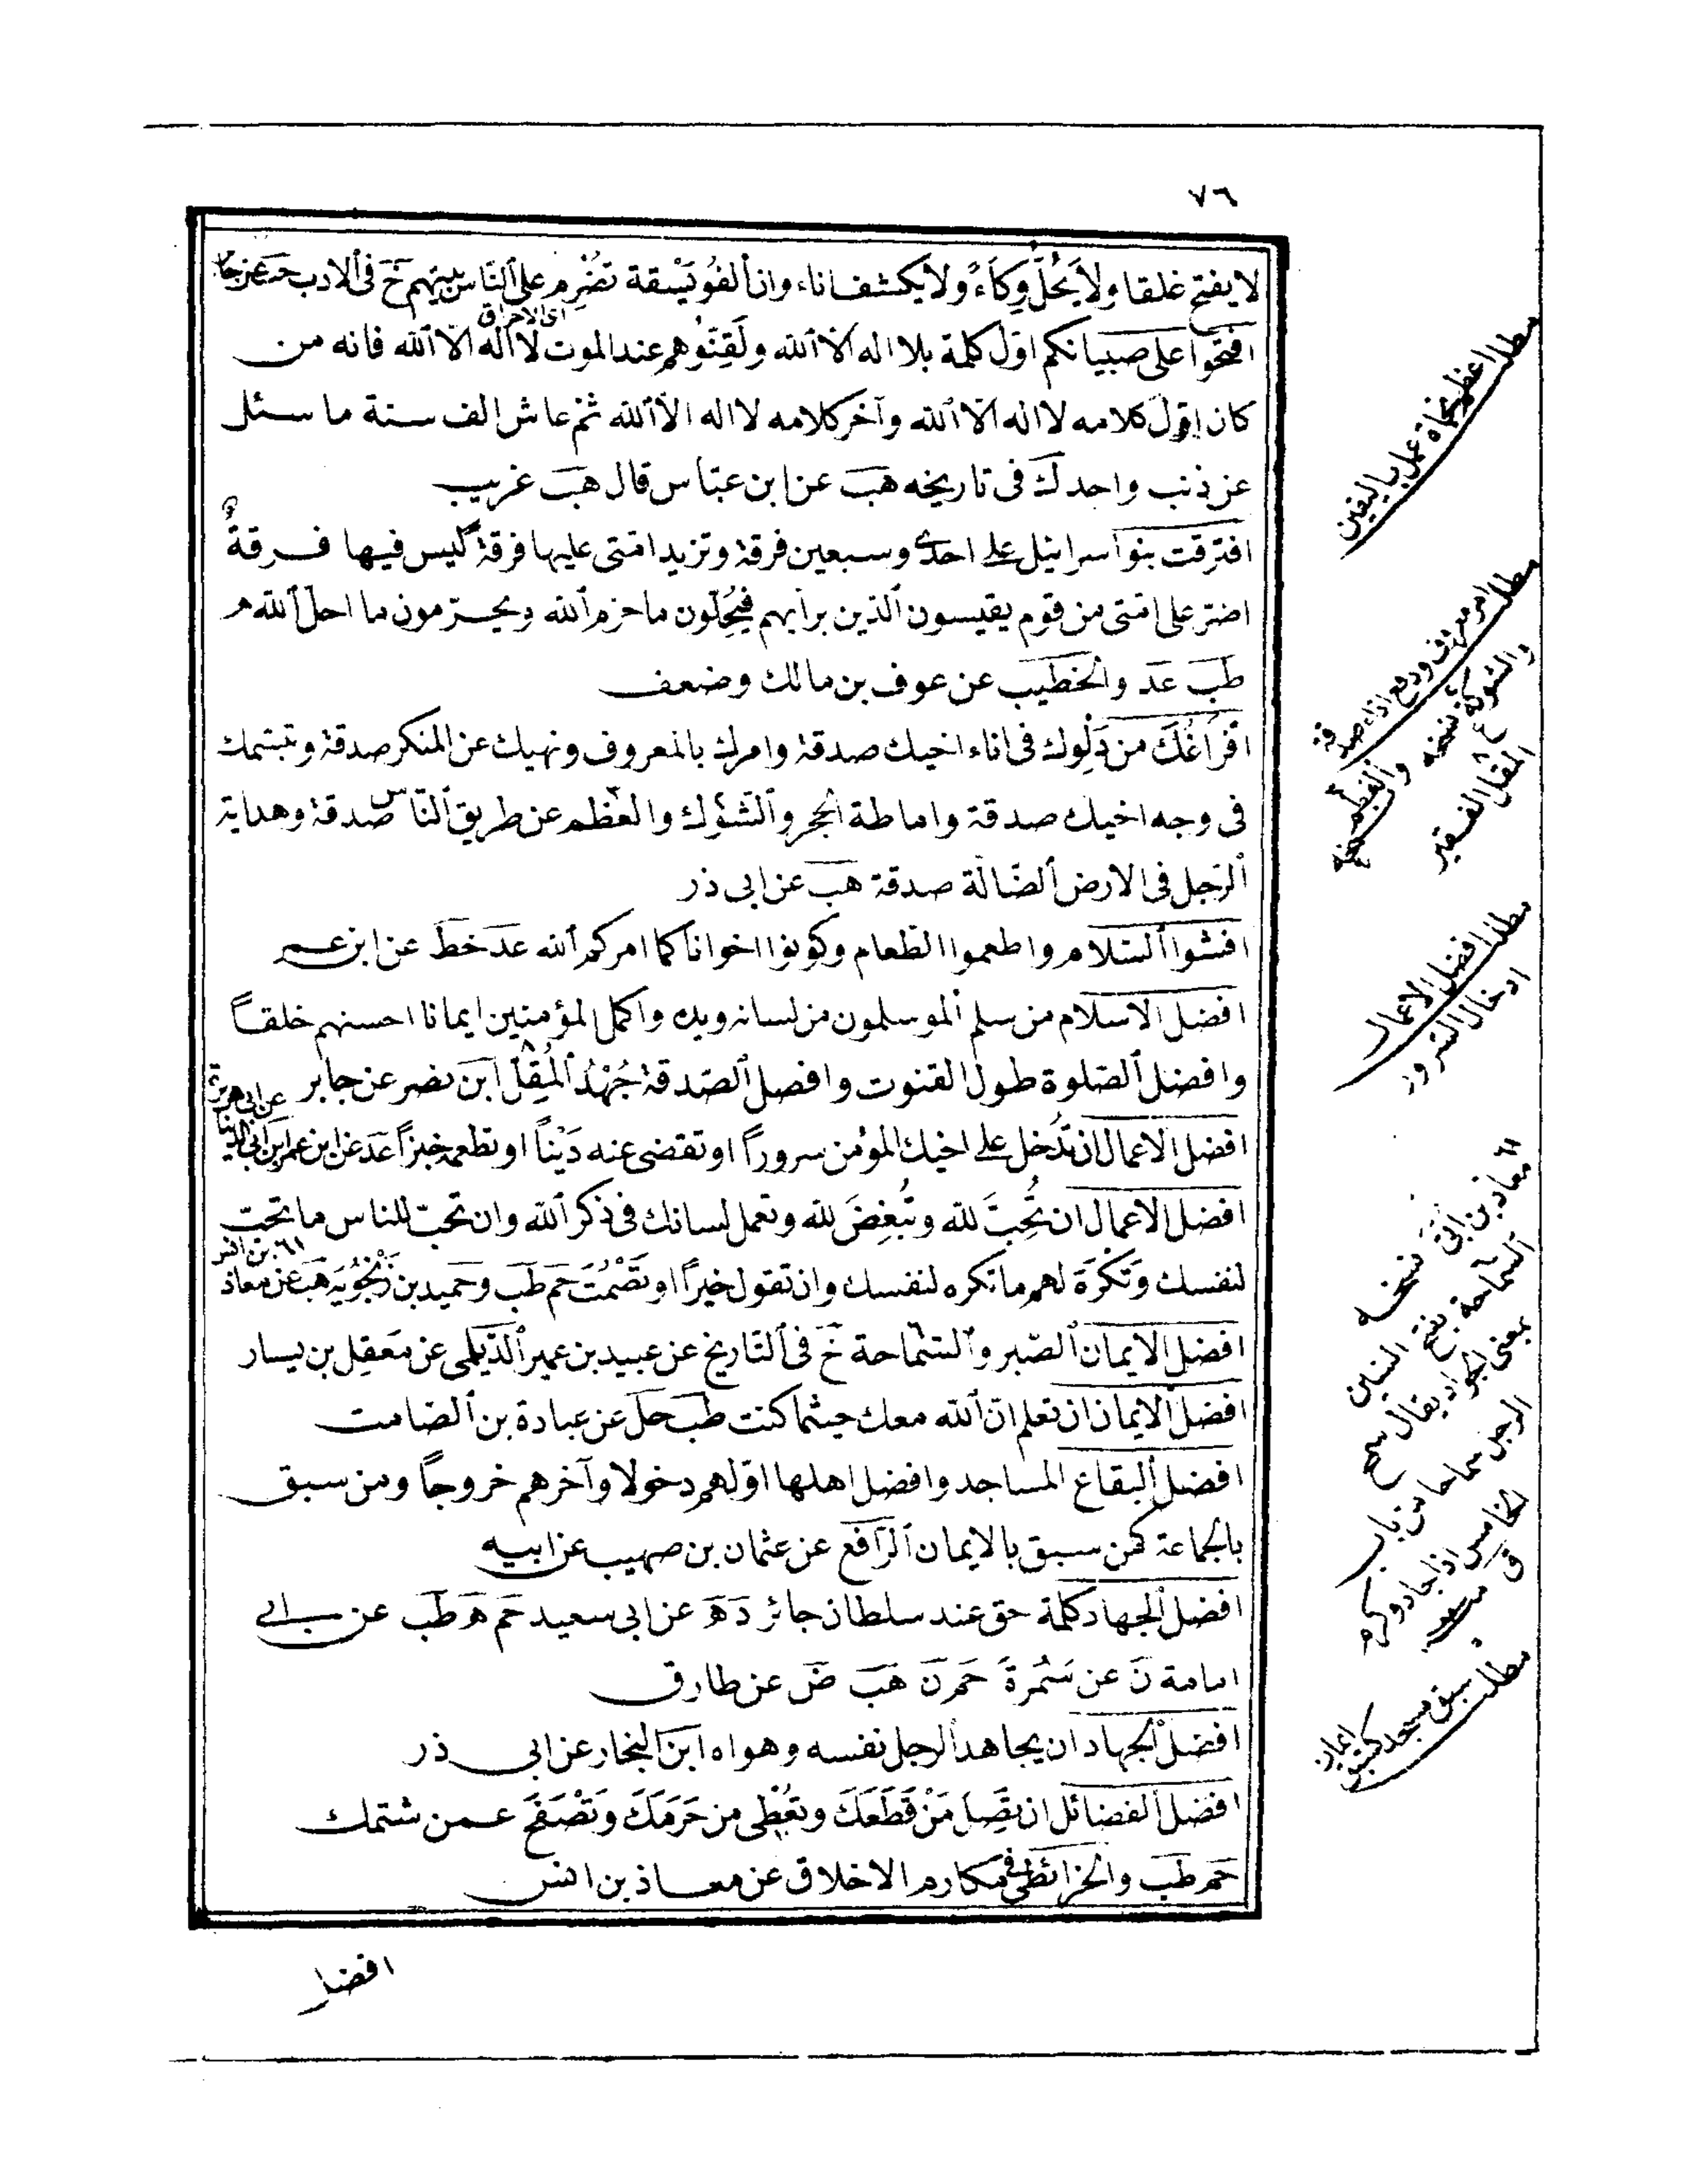 ٧٦
لا يفتح غلقا ولا يَحُلّ وِكَاءً ولا يكشف اناء وان الفُوَيْسِقة تُضْرِم على النّاس بيتهم خَ فى الادب حب عن جابر
اى الاحراق
افتحوا على صبيانكم اوّل كلمة بلا اله الّا الله ولَقِنُوهم عند الموت لا اله الّا الله فانه من
كان اوّل كلامه لا اله الّا الله وآخر كلامه لا اله الّا الله ثم عاش الف سنة ما سئل
عن ذنب واحد ك فى تاريخه هَبَ عن ابن عبّاس قال هَبَ غريب
افترقت بنو اسرائيل على احدى وسبعين فرقة وتزيد امّتى عليها فرقة ليس فيها فرقةٌ
اضرّ على امّتى من قوم يقيسون الدّين برأيهم فيُحِلّون ما حرّم الله ويحرّمون ما احل الله
طَبَ عَدَ والخطيب عن عوف بن مالك وضعف
افْرَاغُكَ من دَلْوِك فى اناء اخيك صدقة وامرك بالمعروف ونهيك عن المنكر صدقة وتبسّمك
فى وجه اخيك صدقة واماطة الحجر والشّوك والعظم عن طريق النّاس صدقة وهداية
الرّجل فى الارض الضّالّة صدقة هَبَ عن ابى ذر
افشوا السّلام واطعموا الطّعام وكونوا اخوانا كما امركم الله عَدَ خَطَ عن ابن عمر
افضل الاسلام من سلم الموسلمون من لسانه ويده واكمل المؤمنين ايمانا احسنهم خلقاً
وافضل الصّلوة طول القنوت وافضل الصّدقة جُهْدُ المُقِلّ ابن نصر عن جابر
افضل الاعمال ان تُدْخل على اخيك المؤمن سروراً او تقضى عنه دَيْناً او تطعمه خبزاً عَدَ عن ابن عمر ابن ابى الدّنيا عن ابى هريرة
افضل الاعمال ان تُحِبّ لله وتُبْغِضَ لله وتعمل لسانك فى ذكر الله وان تحبّ للناس ما تحبّ
لنفسك وتَكْرَهَ لهم ما تكره لنفسك وان تقول خيراً او تَصْمُتَ حَمَ طَبَ وحميد بن زَنْجُوَيْه هَبَ عن معاذ بن انس
افضل الايمان الصّبر والسّماحة خَ فى التّاريخ عن عبيد بن عمير الدّيلمى عن مَعقِل بن يسار
افضل الايمان ان تعلم انّ الله معك حيثما كنت طَبَ حَلَ عن عبادة بن الصّامت
افضل البقاع المساجد وافضل اهلها اوّلهم دخولا وآخرهم خروجاً ومن سبق
بالجماعة كمن سبق بالايمان الرّافع عن عثمان بن صهيب عن ابيه
افضل الجهاد كلمة حق عند سلطان جائر دَ هَ عن ابى سعيد حَمَ هَ طَبَ عن ابى
امامة نَ عن سَمُرةَ حَمَ نَ هَبَ ضَ عن طارق
افضل الجهاد ان يجاهد الرجل نفسه وهواه ابن النجار عن ابى ذر
افضل الفضائل ان تصِلَ مَنْ قَطَعَكَ وتُعْطِى من حَرَمَكَ وتَصْفَحَ عمن شتمك
حَمَ طَبَ والخرائطى فى مكارم الاخلاق عن معاذ بن انس
افضل
مطلب اعظم نجاة عمل باليقين
مطلب امر معروف ودفع اذاء صدقة
والشوكة نسخه
والعظم نسخه
المقل الفقير
مطلب افضل الاعمال
ادخال السّرور
معاذ بن انس نسخه
السماحة بفتح السّين
بمعنى الجود يقال سمح
الرجل سماحا من باب
الخامس اذا جاد وكرم
مطلب سبق مسجد كسبق ايمان